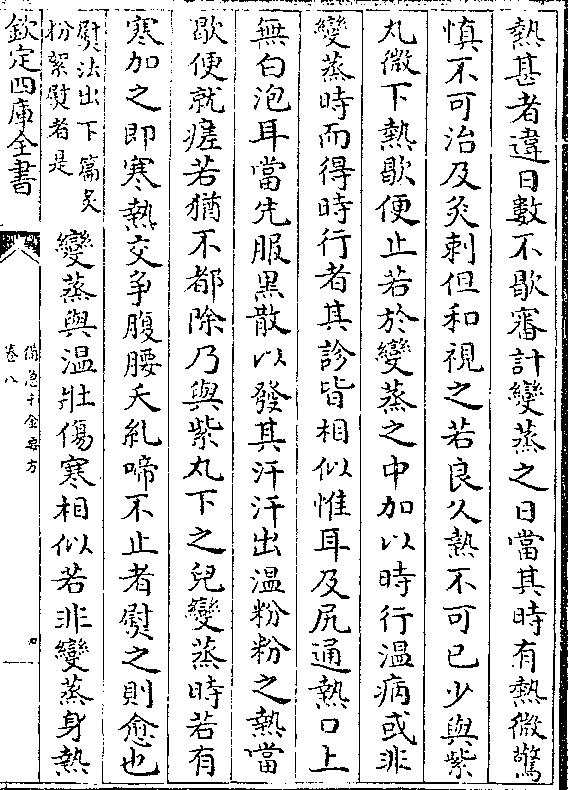 熱甚者違日數不歇審計變蒸之日當其時有熱微驚
慎不可治及灸刺但和視之若良久熱不可已少與紫
丸微下熱歇便止若於變蒸之中加以時行溫病或非
變蒸時而得時行者其診皆相似惟耳及尻通熱口上
無白泡耳當先服黑散以發其汗汗出溫粉粉之熱當
歇便就瘥若猶不都除乃與紫丸下之兒變蒸時若有
寒加之即寒熱交争腹腰夭糺啼不止者熨之則愈也
熨法出下篇炙
粉絮熨者是
變蒸與温壯傷寒相似若非變蒸身熱
欽定四庫全書
備急千金要方
卷八